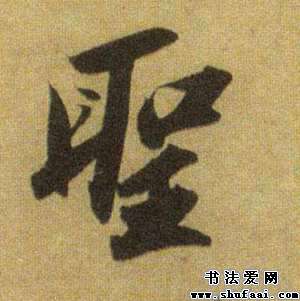 聖
书法爱网
www.shufaai.com